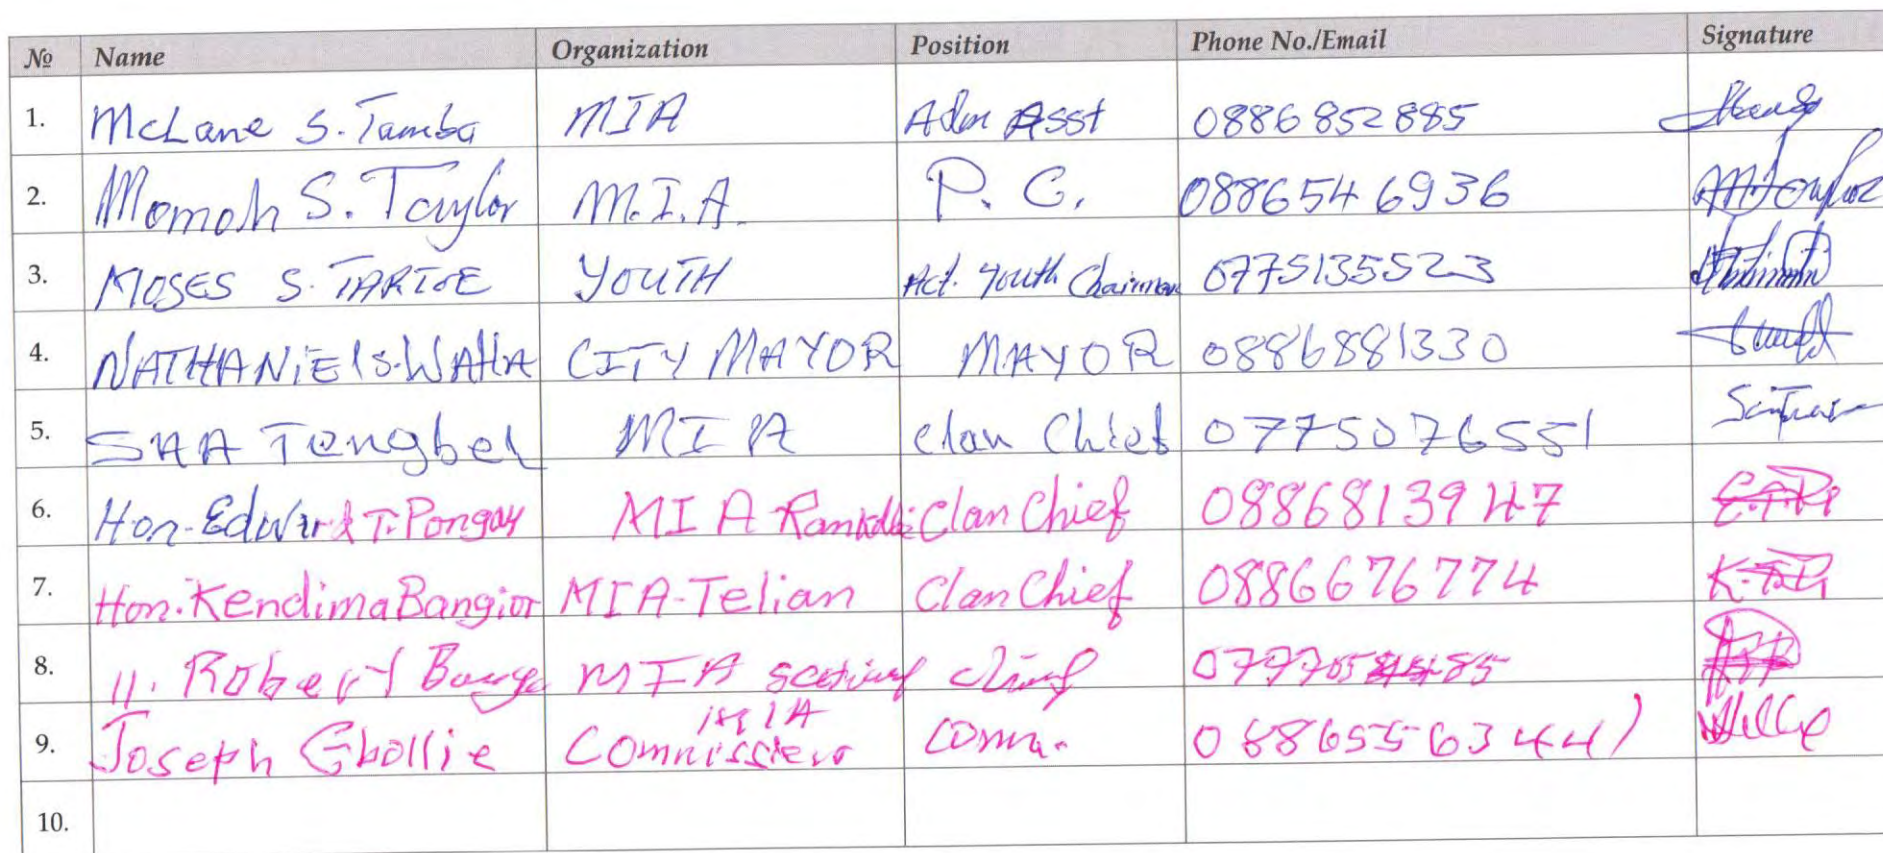 № Name Organization Position Phone No./Email Signature
1. McLane S. Tamba MIA Adm Asst 0886852885
2. Momoh S. Taylor M.I.A. P. C. 0886546936
3. MOSES S. TARTOE YOUTH Act. Youth Chairman 0775135523
4. NATHANIEL S. WAHA CITY MAYOR MAYOR 0886881330
5. SAA Tengbeh MIA Clan Chief 0775076551
6. Hon. Edward T. Pongay MIA Clan Chief 0886813947
7. Hon. Kendima Bangior MIA-Telian Clan Chief 0886676774
8. Robert MIA chief
9. Joseph Gbollie MIA Comm.
10.